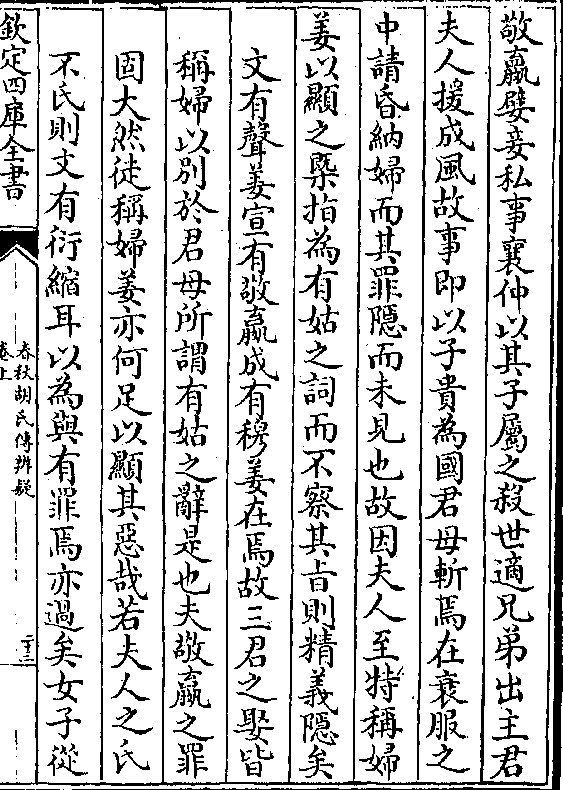 敬嬴嬖妾私事襄仲以其子屬之殺世適兄弟出主君
夫人援成風故事即以子貴為國君母斬焉在衰服之
中請昏納婦而其罪隱而未見也故因夫人至特稱婦
姜以顯之槩指為有姑之詞而不察其旨則精義隱矣
文有聲姜宣有敬嬴成有穆姜在焉故三君之娶皆
稱婦以別於君母所謂有姑之辭是也夫敬嬴之罪
固大然徒稱婦姜亦何足以顯其惡哉若夫人之氏
不氏則文有衍縮耳以為與有罪焉亦過矣女子從
欽定四庫全書
春秋胡氏傳辨疑
卷上
二十三